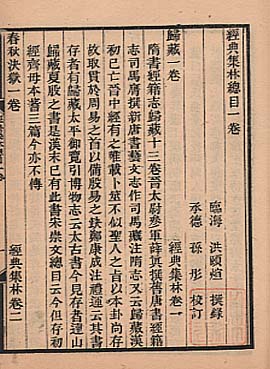 經典集林總目一卷
臨海 洪頤煊 撰錄
承德 孫彤 校訂
歸藏一卷 經典集林卷一
隋書經籍志歸藏十三卷晉太尉參軍薛貞撰舊唐書經籍
志司馬膺注新唐書藝文志作司馬膺注隋志又云歸藏漢
初已亡晉中經有之唯載卜筮不似聖人之旨以本卦尚存
故取貫於周易之首以備殷易之缺鄭康成注禮運云其書
存者有歸藏太平御覽引博物志云太古書今見存者連山
歸藏夏殷之書是漢末已有此書宋崇文總目云今但存初
經齊母本蓍三篇今亦不傳
春秋決獄一卷 經典集林卷二